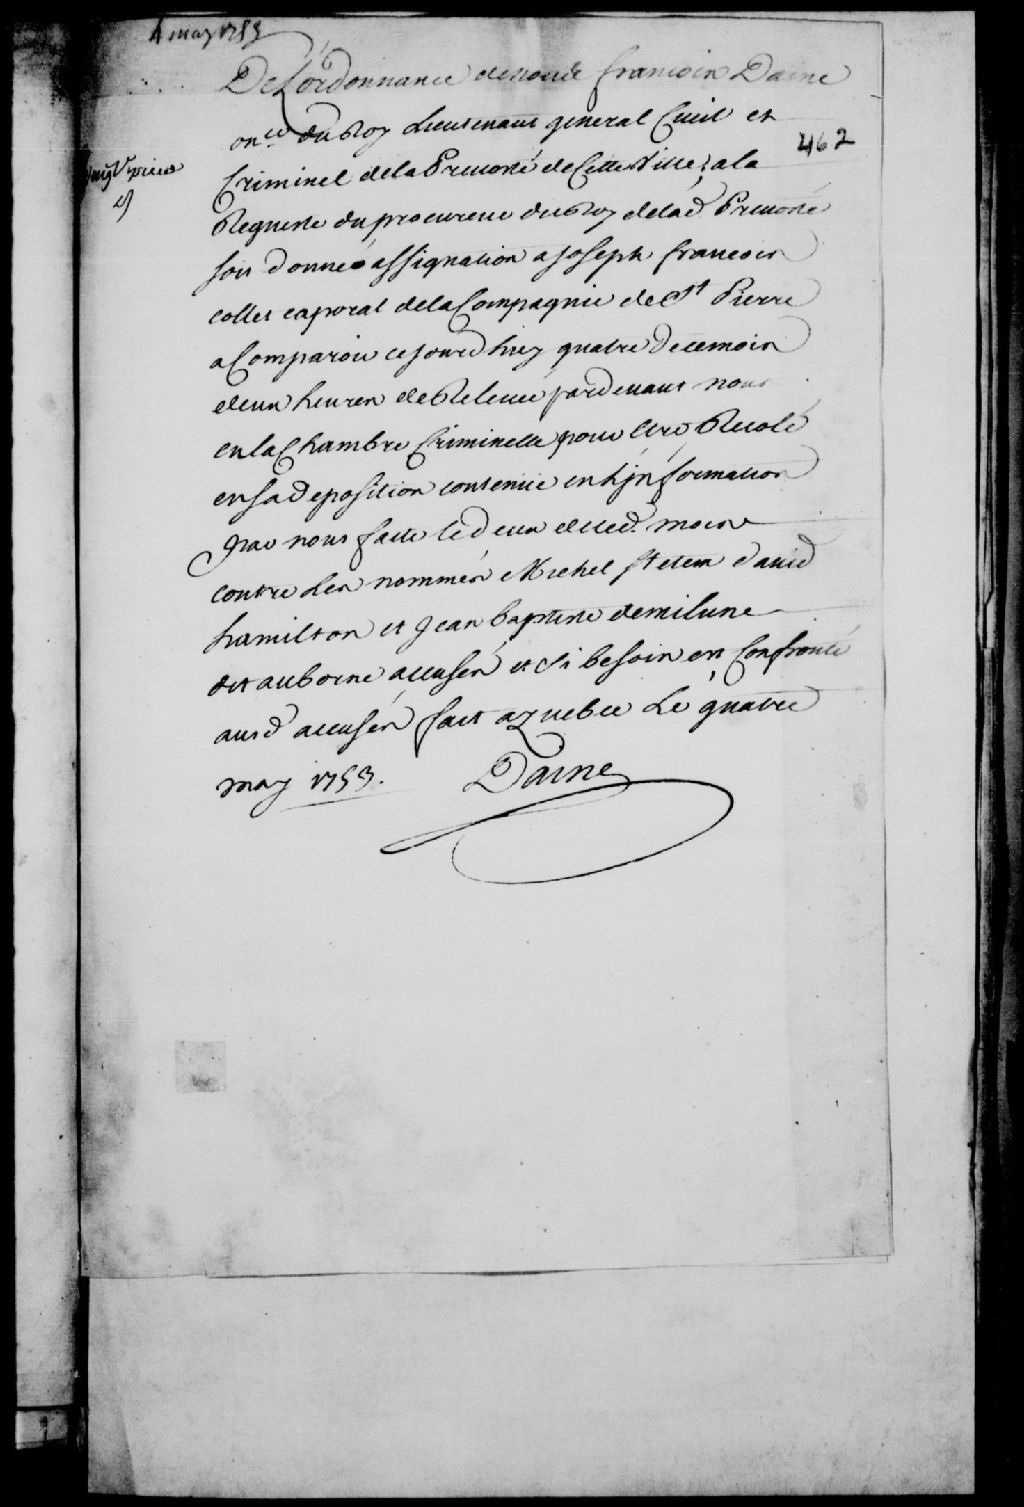 4 may 1753
De Lordonnance de nous francois Daine
on.er du Roy Lieutenant general Civil et
462
Criminel de la Prevosté de Cette Ville, a la
Requeste du procureur du Roy de lad. Prevosté
soit donné assignation a Joseph francois
collet caporal de la Compagnie de St Pierre
a Comparoir cejourdhuy quatre de cemois
deux heures de Relevée pardevant nous
en la Chambre Criminelle pour Etre Recolé
en sa deposition contenüe en Linformation
par nous faite le deux duud. mois
contre Les nommés Michel stetem david
hamilton et Jean baptiste demilune
dit auborne accusés et si besoin est Confronté
ausd accusés fait a quebec Le quatre
may 1753. Daine